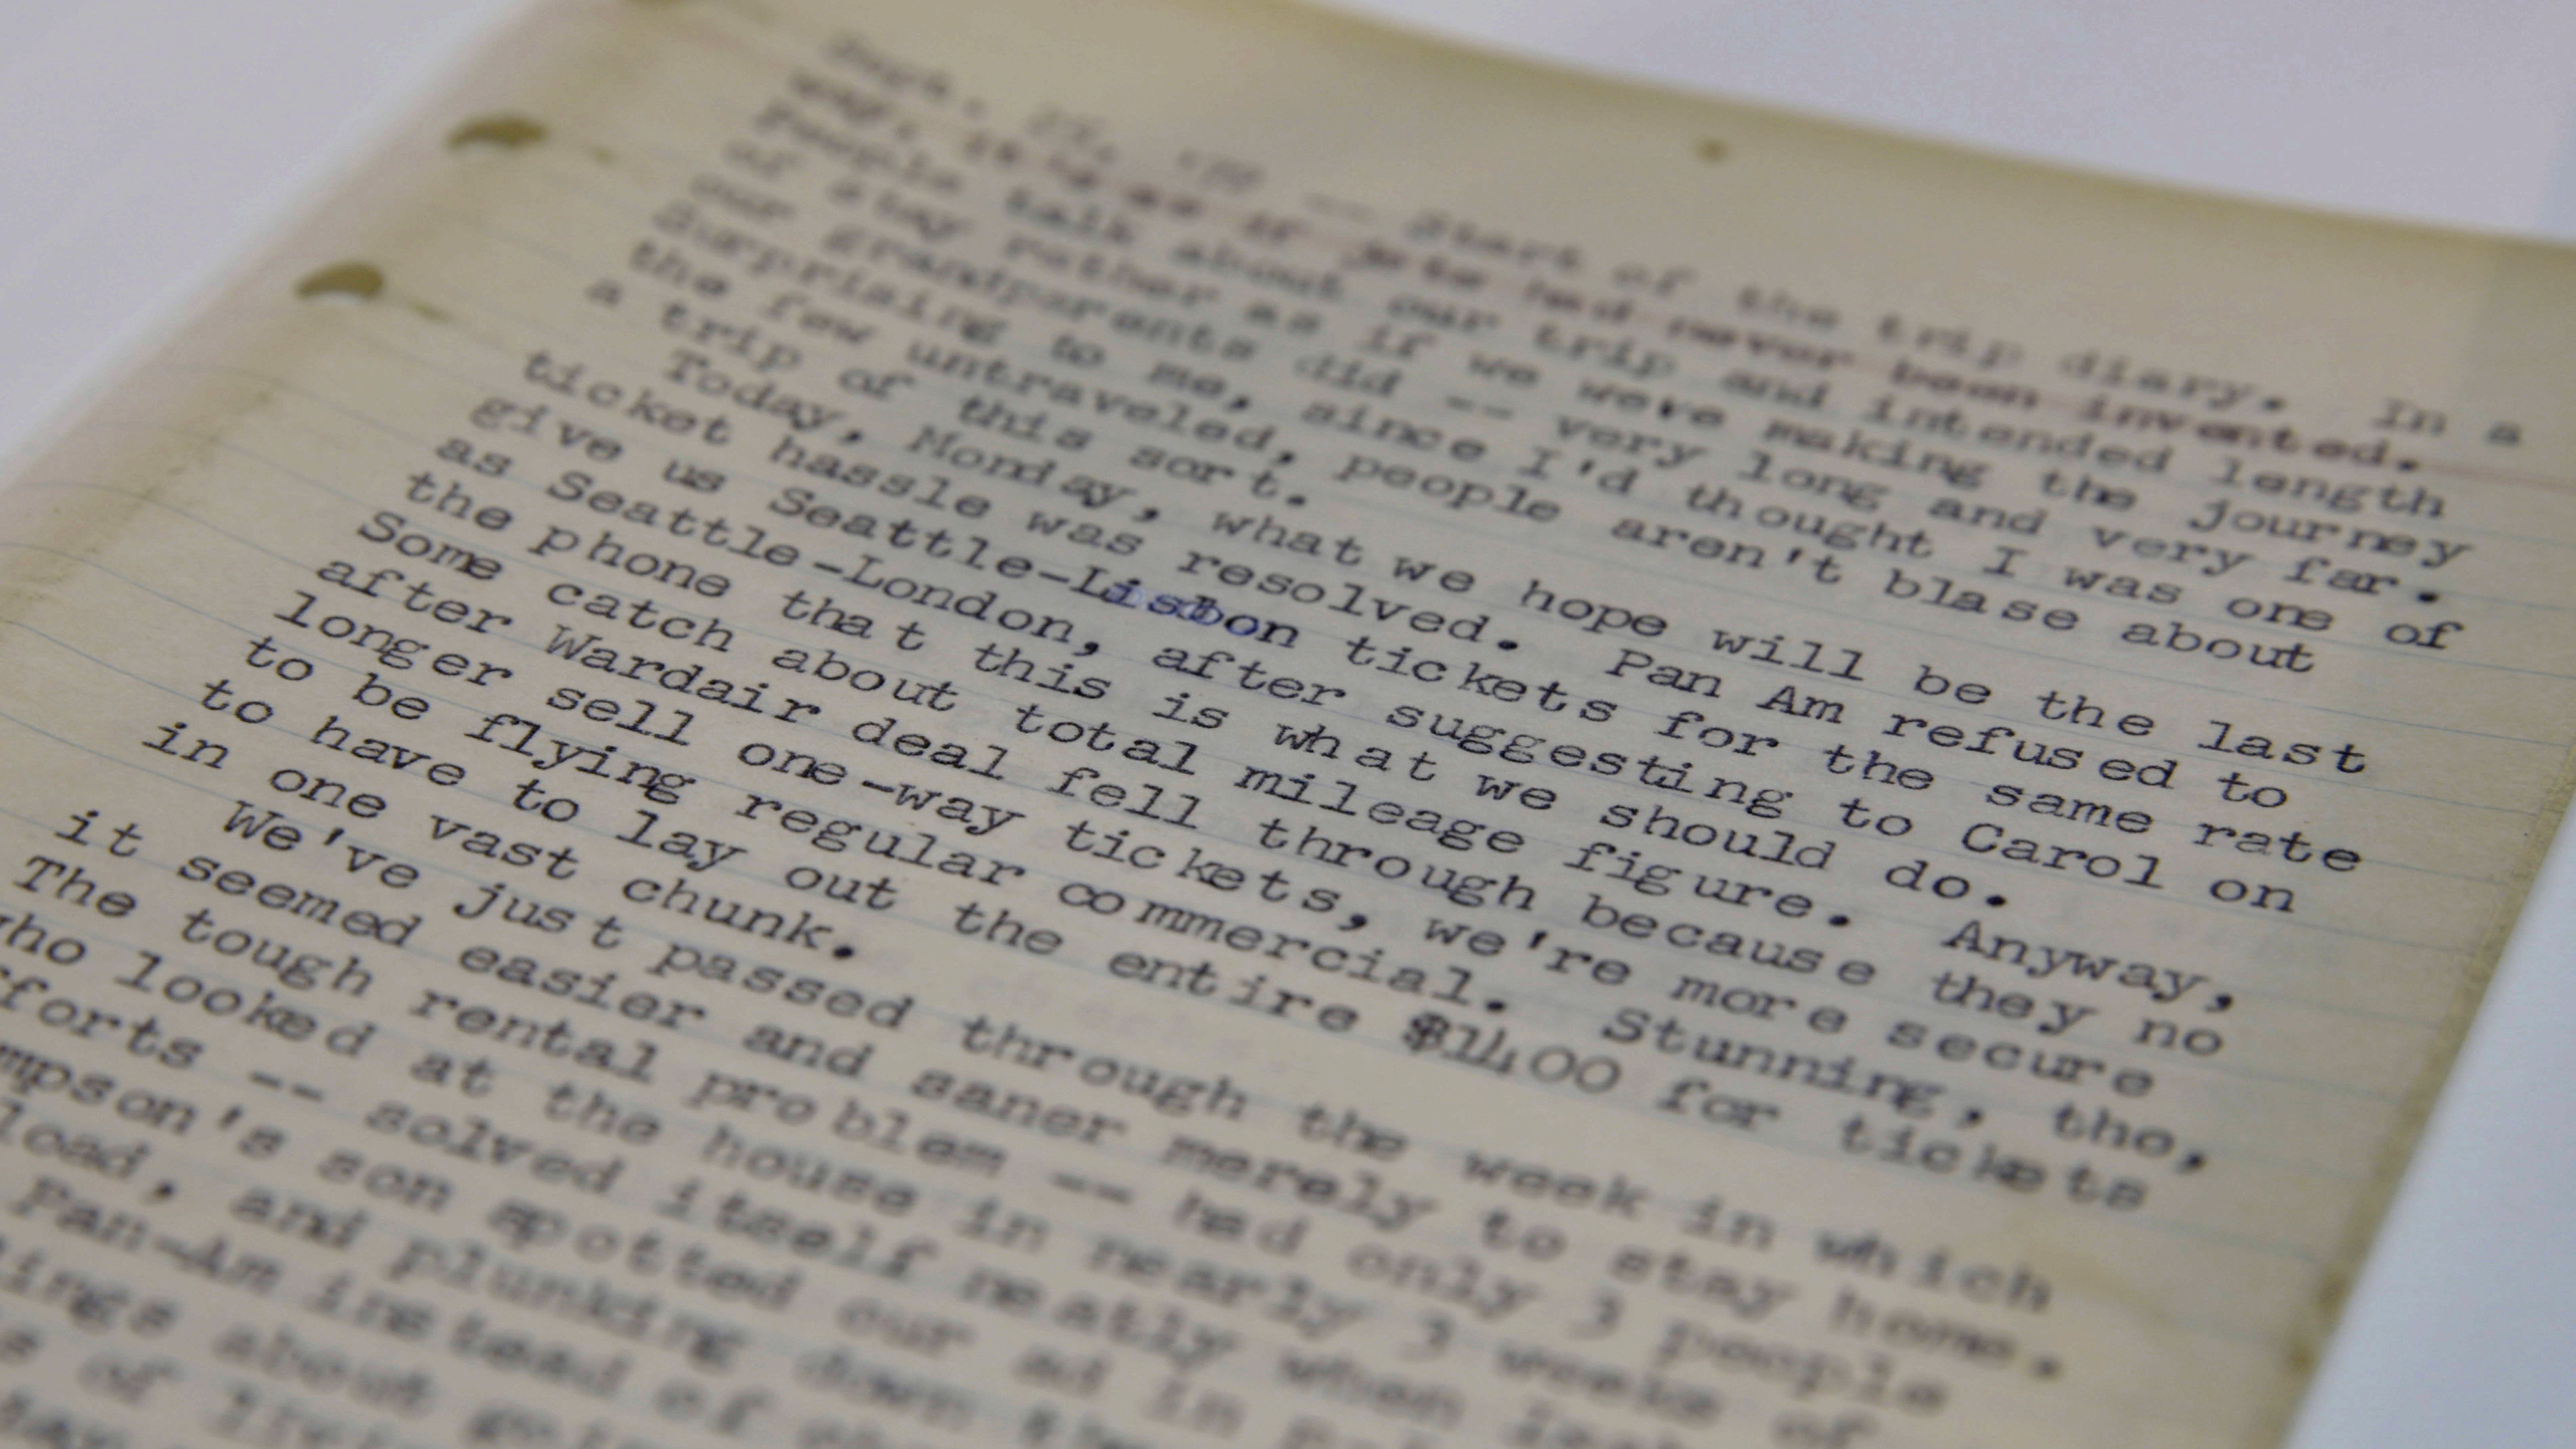 Sept. -- Start of the trip diary. In a
way, it's as if jets had never been invented.
People talk about our trip and intended length
of stay rather as if we were making the journey
our grandparents did -- very long and very far.
Surprising to me, since I'd thought I was one of
the few untraveled, people aren't blase about
a trip of this sort.
Today, Monday, what we hope will be the last
ticket hassle was resolved. Pan Am refused to
give us Seattle-Lisbon tickets for the same rate
as Seattle-London, after suggesting to Carol on
the phone that this is what we should do.
Some catch about total mileage figure. Anyway,
after Wardair deal fell through because they no
longer sell one-way tickets, we're more secure
to be flying regular commercial. Stunning, tho,
to have to lay out the entire $1400 for tickets
in one vast chunk.
We've just passed through the week in which
it seemed easier and saner merely to stay home.
The tough rental problem -- had only 3 people
who looked at the house in nearly 3 weeks of
fforts -- solved itself neatly when
mpson's son spotted our ad in
load, and plunking down
Pan-Am instead of
ings about
s of